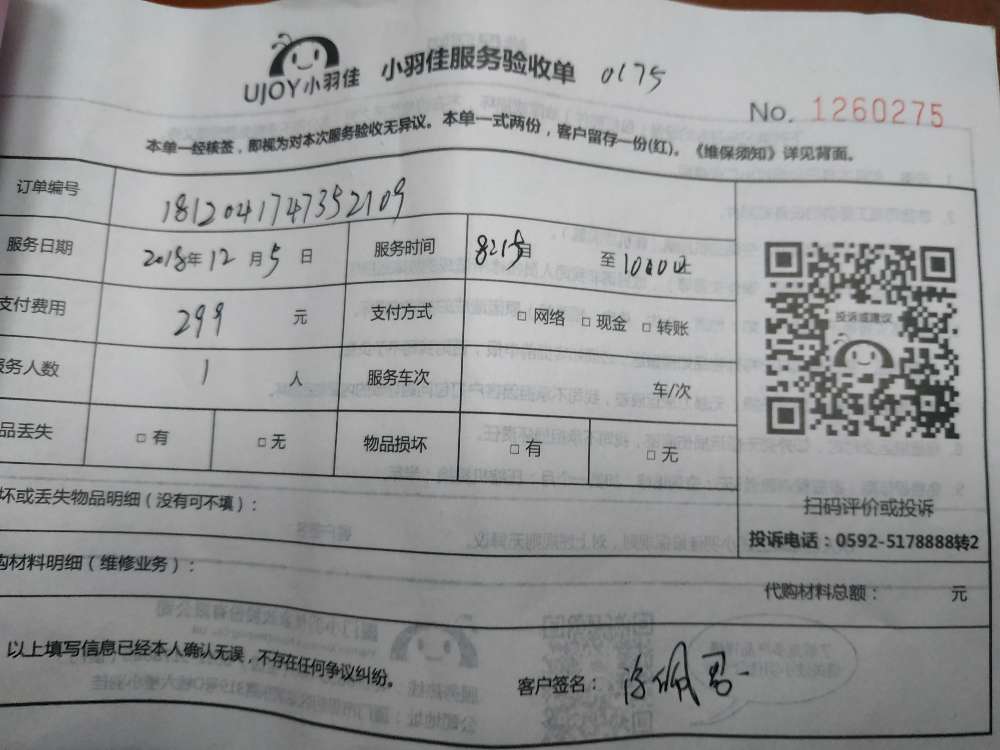 UJOY小羽佳 小羽佳服务验收单 0175
No. 1260275
本单一经核签，即视为对本次服务验收无异议。本单一式两份，客户留存一份(红)。《维保须知》详见背面。
订单编号 1812041747352109
服务日期 2018年12月5日 服务时间 8215 至1000止
支付费用 299 元 支付方式 □ 网络 □ 现金 □ 转账
务人数 1 人 服务车次 车/次
品丢失 □ 有 □ 无 物品损坏 □ 有 □ 无
投诉或建议
扫码评价或投诉
投诉电话：0592-5178888转2
坏或丢失物品明细（没有可不填）：
购材料明细（维修业务）：
代购材料总额： 元
以上填写信息已经本人确认无误，不存在任何争议纠纷。
客户签名：